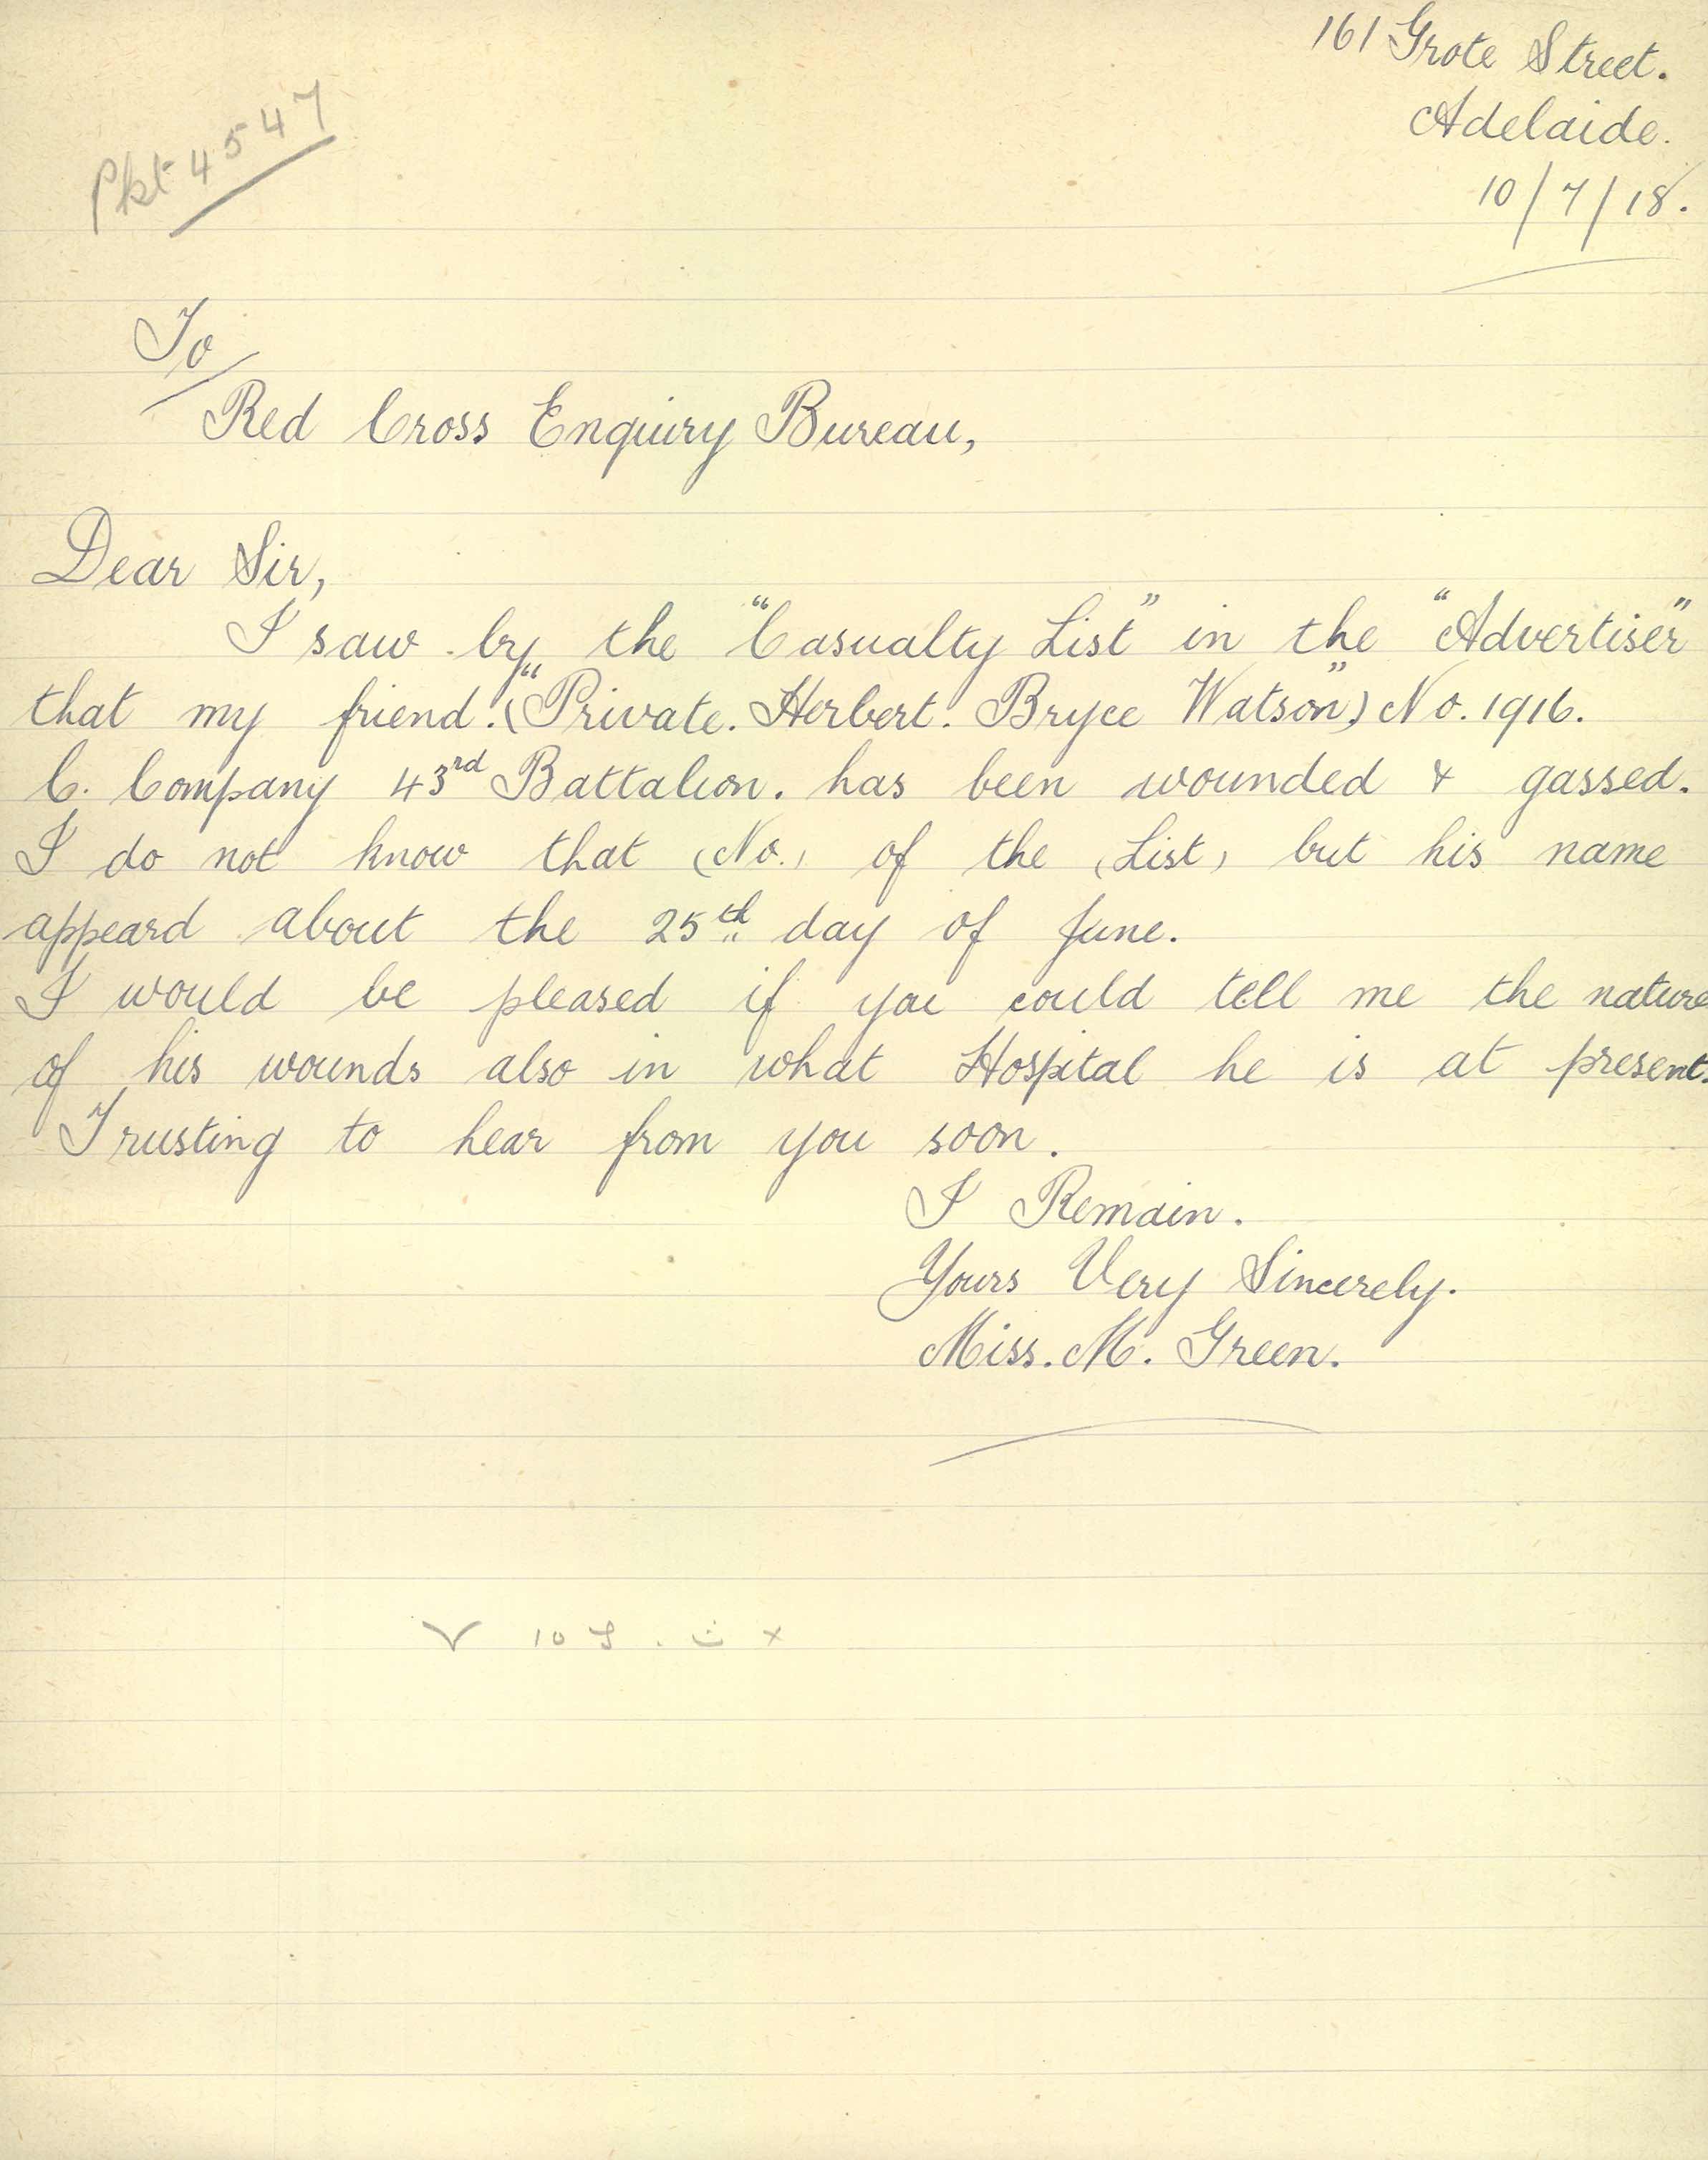 161 Grote Street.
Adelaide.
10/7/18.
Pkt 4547
To
Red Cross Enquiry Bureau,
Dear Sir,
I saw by the "Casualty List" in the "Advertiser"
that my friend. ("Private. Herbert. Bryce Watson") No. 1916.
C. Company 43rd Battalion. has been wounded & gassed.
I do not know that (No.) of the (List) but his name
appeard about the 25th day of June.
I would be pleased if you could tell me the nature
of his wounds also in what Hospital he is at present.
Trusting to hear from you soon.
I Remain.
Yours Very Sincerely.
Miss. M. Green.